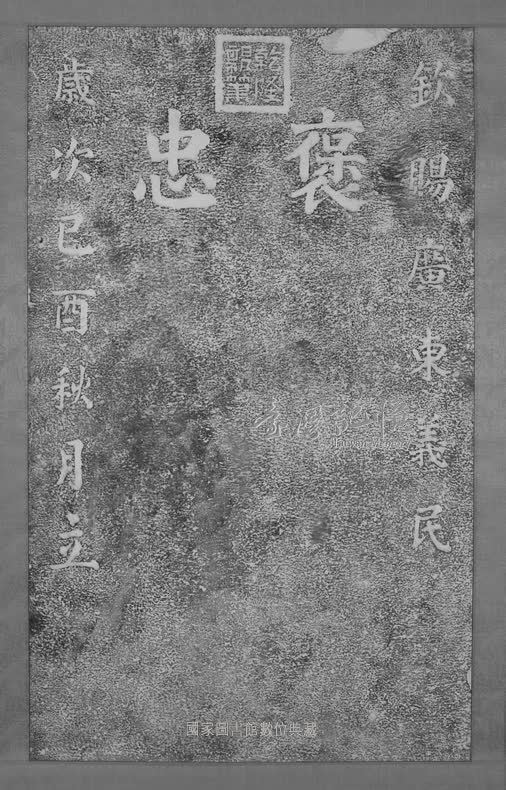 欽賜廣東義民
褒忠
歲次己酉秋月立
國家圖書館數位典藏